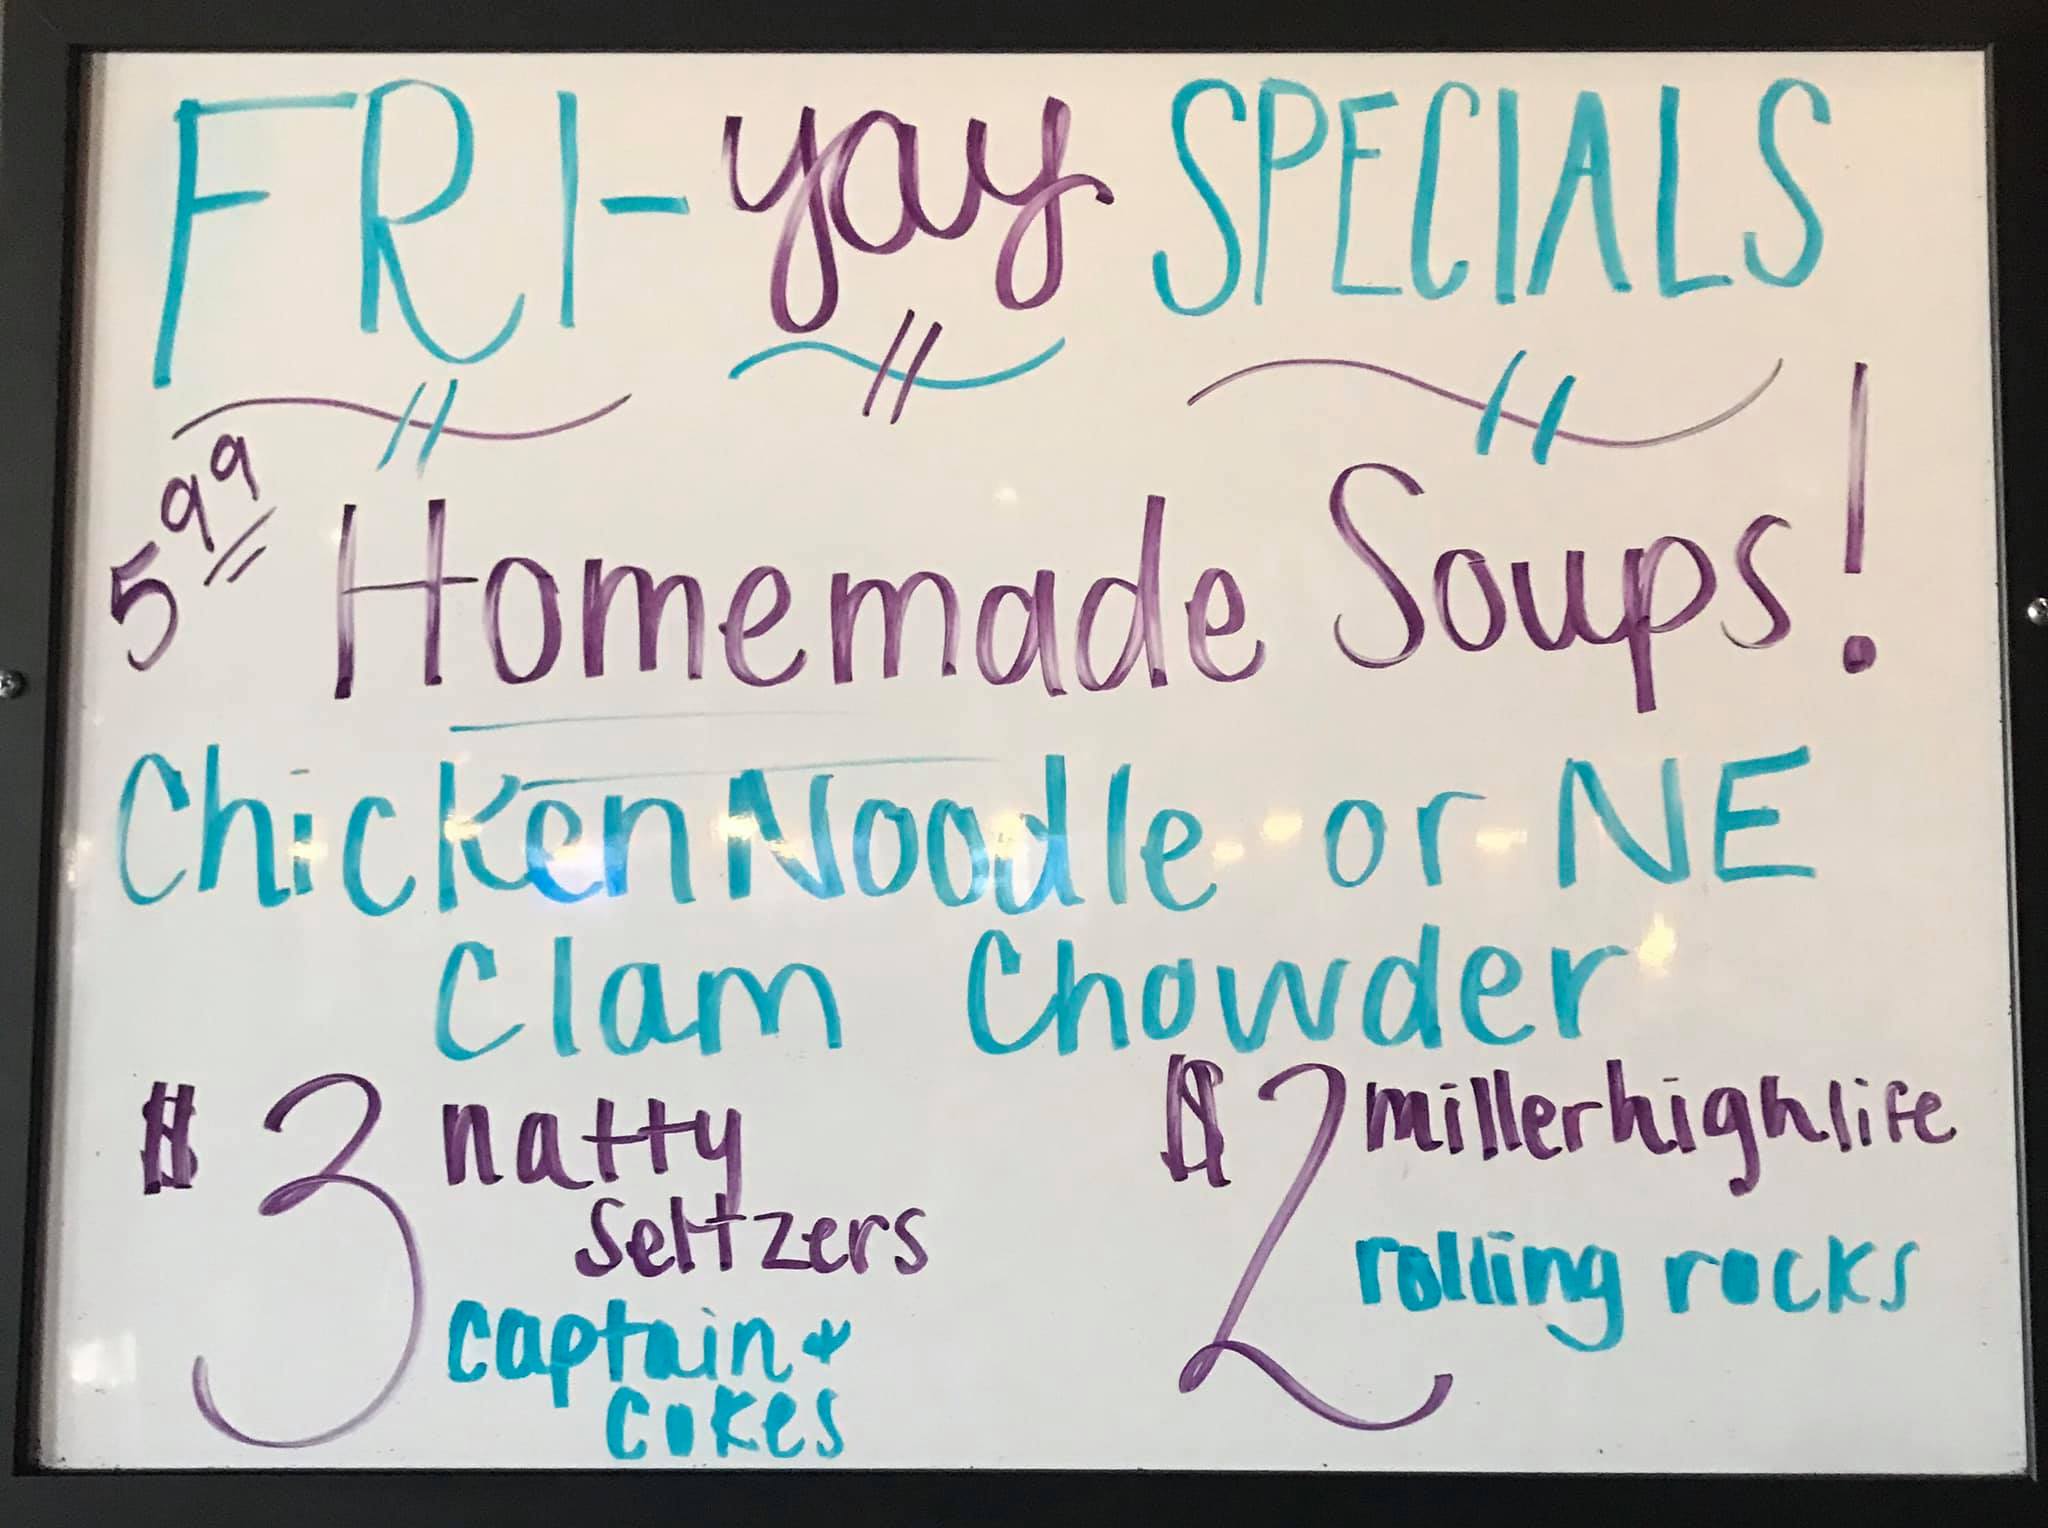 FRI-yay SPECIALS
5.99 Homemade Soups!
Chicken Noodle or NE
Clam Chowder
$3 natty
seltzers
captain +
cokes
$2 miller high life
rolling rocks